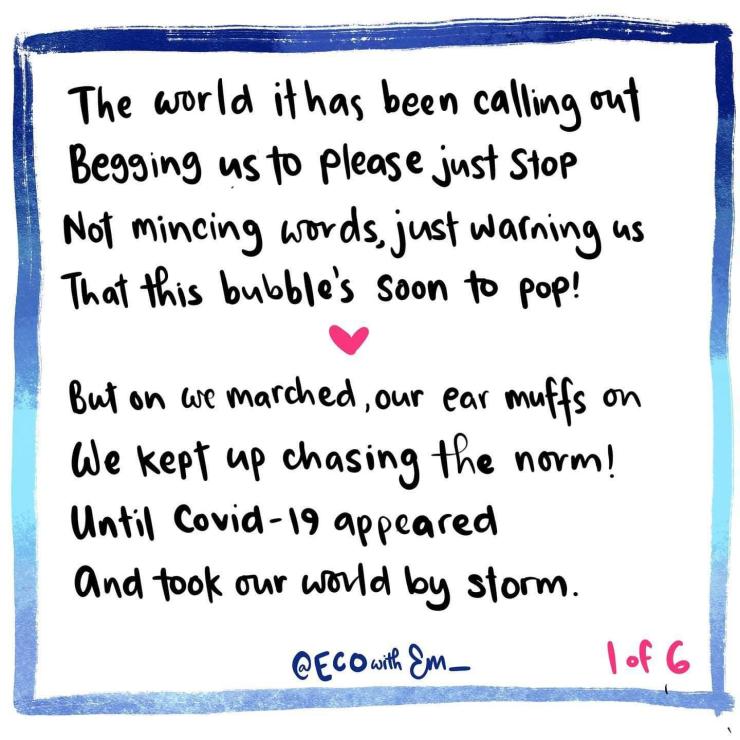 The world it has been calling out
Begging us to please just stop
Not mincing words, just warning us
That this bubble's soon to pop!
But on we marched, our ear muffs on
We kept up chasing the norm!
Until Covid-19 appeared
And took our world by storm.
@ECO with Em_
1 of 6